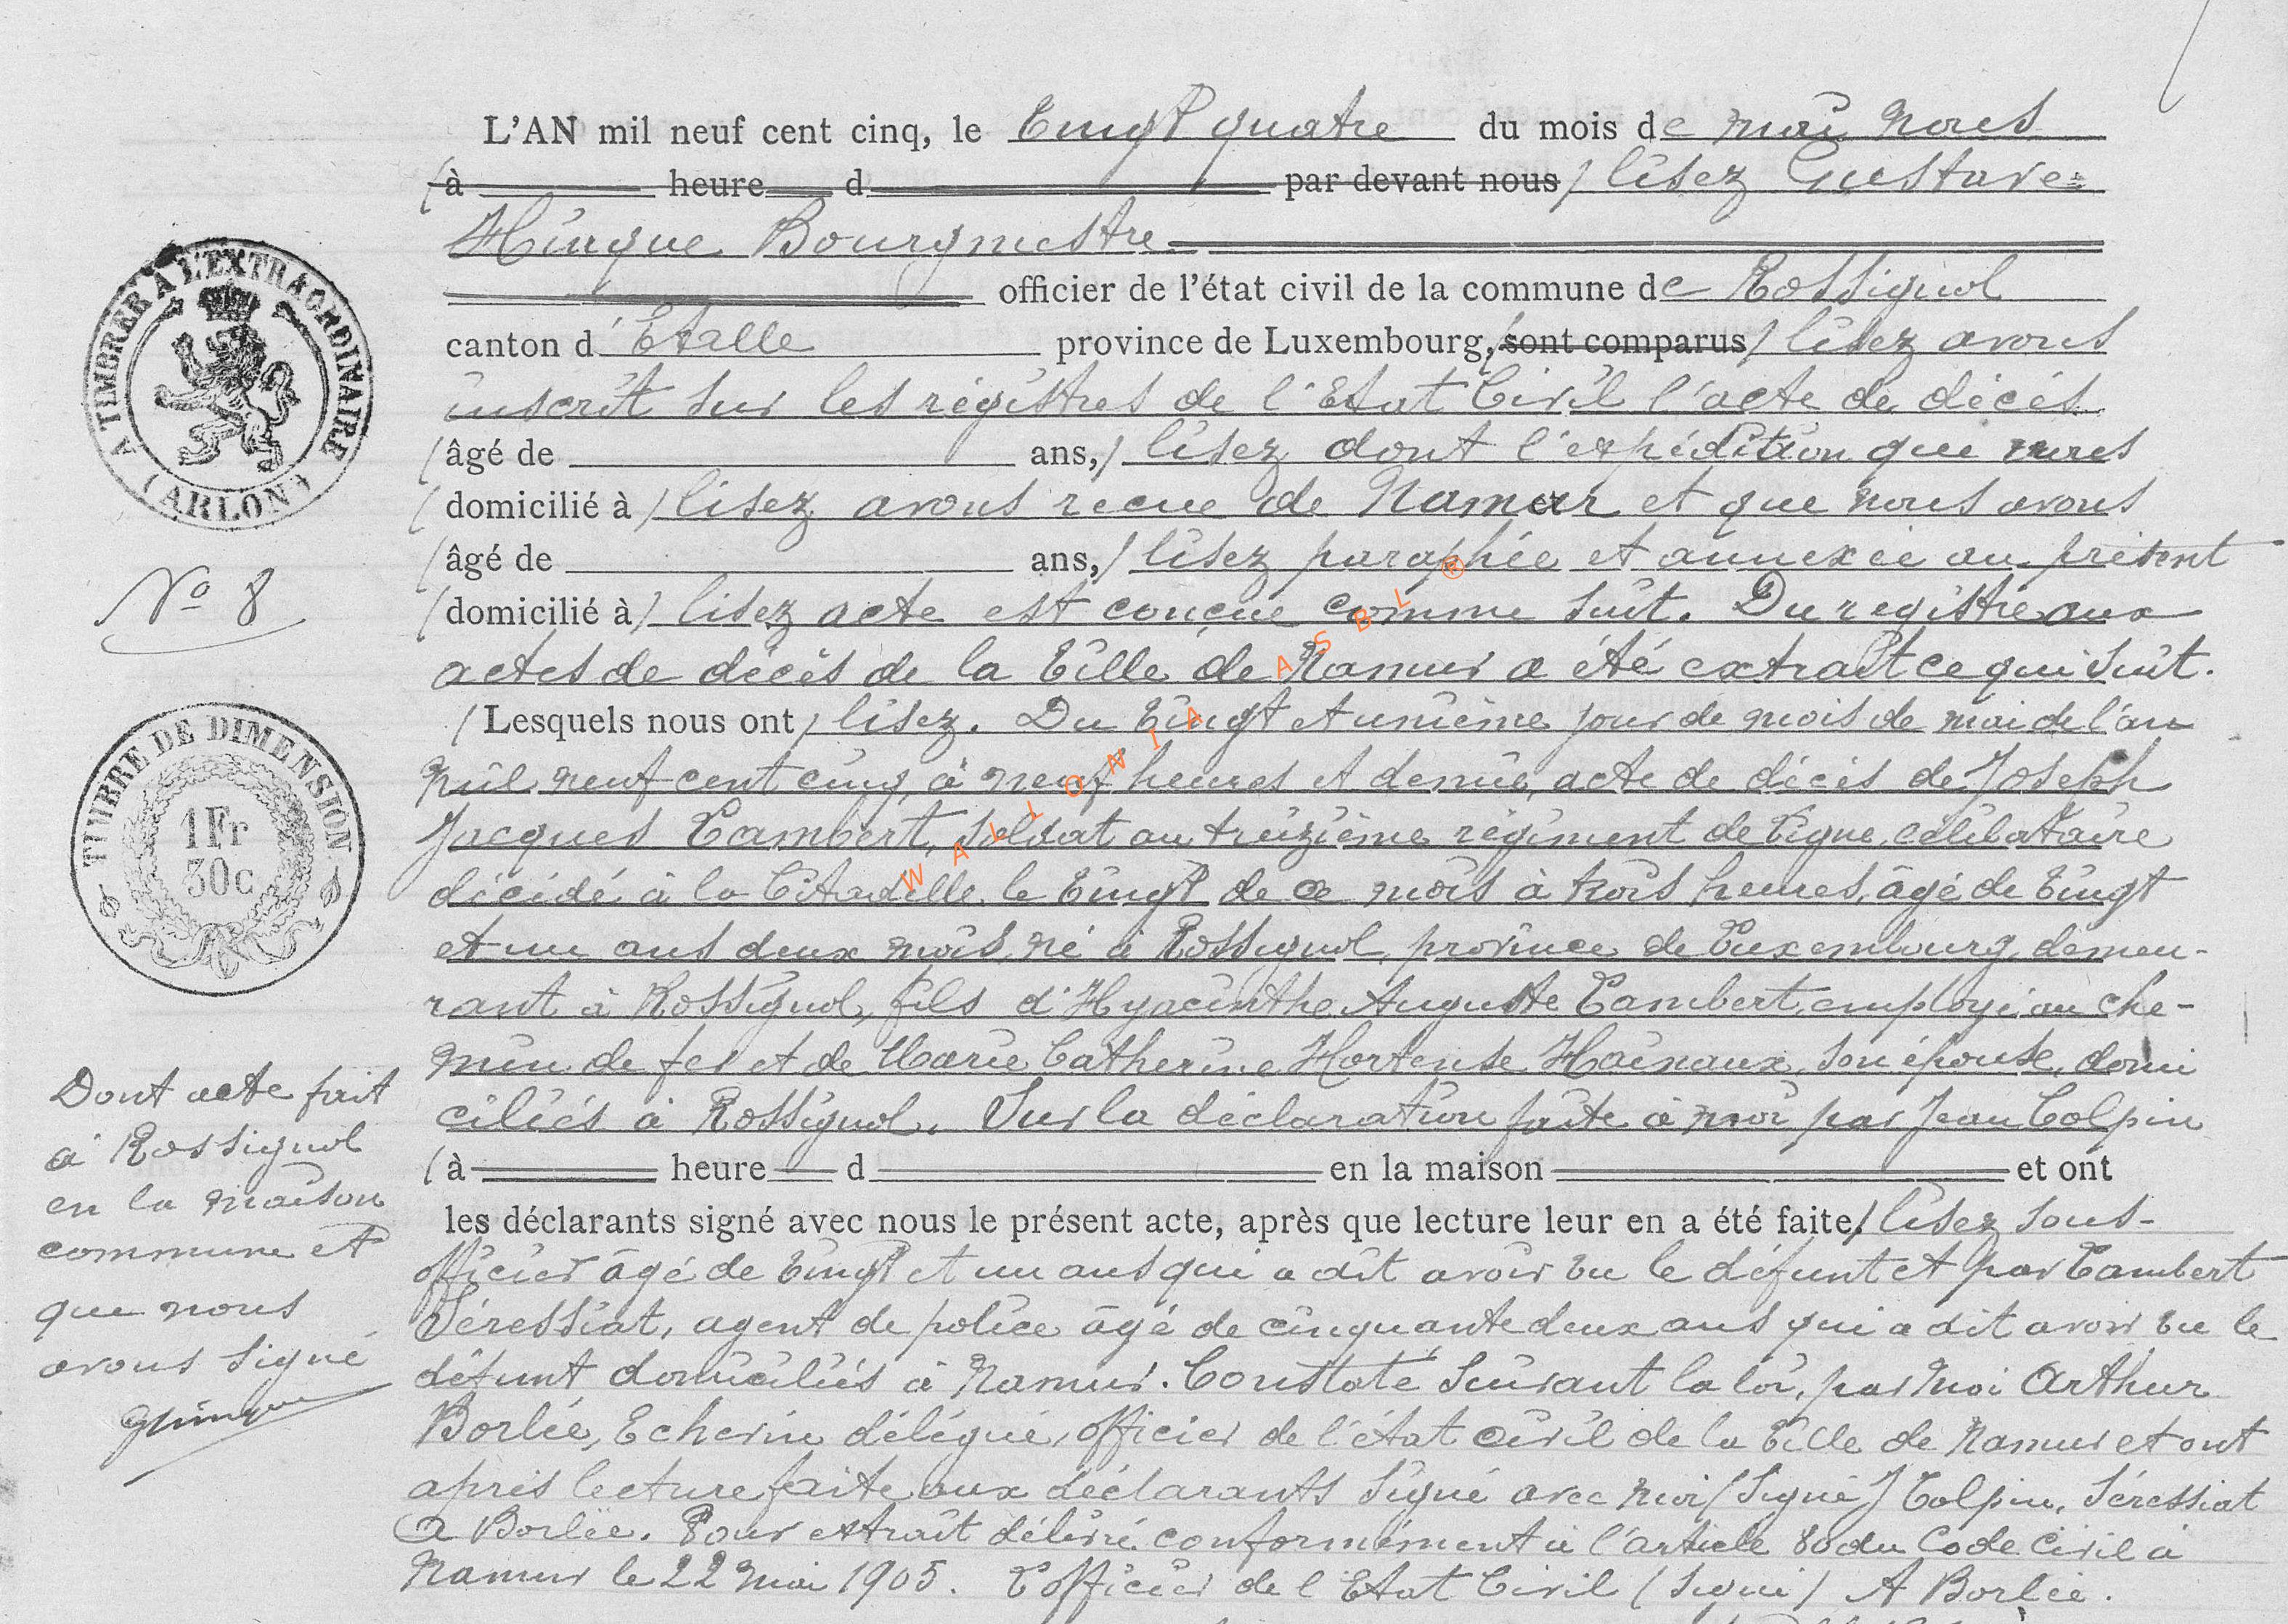 L'AN mil neuf cent cinq, le Vingt quatre du mois de mai Nous
(à heure d par devant nous) lisez Gustave
Hinque Bourgmestre
officier de l'état civil de la commune de Rossignol
canton d'Etalle province de Luxembourg, (sont comparus) lisez avons
inscrit sur les régistres de l'Etat Civil l'acte de décès
(âgé de ans,) lisez dont l'expédition que nous
(domicilié à) lisez avons recue de Namur et que nous avons
(âgé de ans,) lisez paraphée et annexée au présent
(domicilié à) lisez acte est conçue comme suit. Du registre aux
actes de décès de la Ville de Namur a été extrait ce qui suit.
(Lesquels nous ont) lisez. Du Vingt et unième jour de mois de mai de l'an
mil neuf cent cinq, à neuf heures et demie, acte de décès de Joseph
Jacques Lambert, soldat au treizième régiment de Ligne, célibataire
décédé à la Citadelle le Vingt de ce mois à trois heures, âgé de Vingt
et un ans deux mois, né à Rossignol, province de Luxembourg, demeu-
rant à Rossignol, fils d'Hyacinthe Auguste Lambert, employé au che-
min de fer et de Marie Catherine Hortense Hainaux, son épouse, domi
ciliés à Rossignol. Sur la déclaration faite à moi par Jean Colpin
(à heure d en la maison et ont
les déclarants signé avec nous le présent acte, après que lecture leur en a été faite) lisez sous-
officier âgé de Vingt et un ans qui a dit avoir Vu le défunt et par Lambert
Séressiat, agent de police âgé de cinquante deux ans qui a dit avoir Vu le
défunt domiciliés à Namur. Constaté suivant la loi, par moi Arthur
Borlée, Echevin délégué, officier de l'état civil de la Ville de Namur et ont
après lecture faite aux déclarants signé avec moi (Signé) J Colpin, Séressiat
A Borlée. Pour extrait délivré conformément à l'article 80 du Code Civil à
Namur le 22 mai 1905. L'officier de l'Etat Civil (signé) A Borlée.
A TIMBRER A L'EXTRAORDINAIRE
(ARLON)
No 8
TIMBRE DE DIMENSION
1Fr
30c
Dont acte fait
à Rossignol
en la maison
commune et
que nous
avons signé
GHinque
WALLONIA ASBL ®